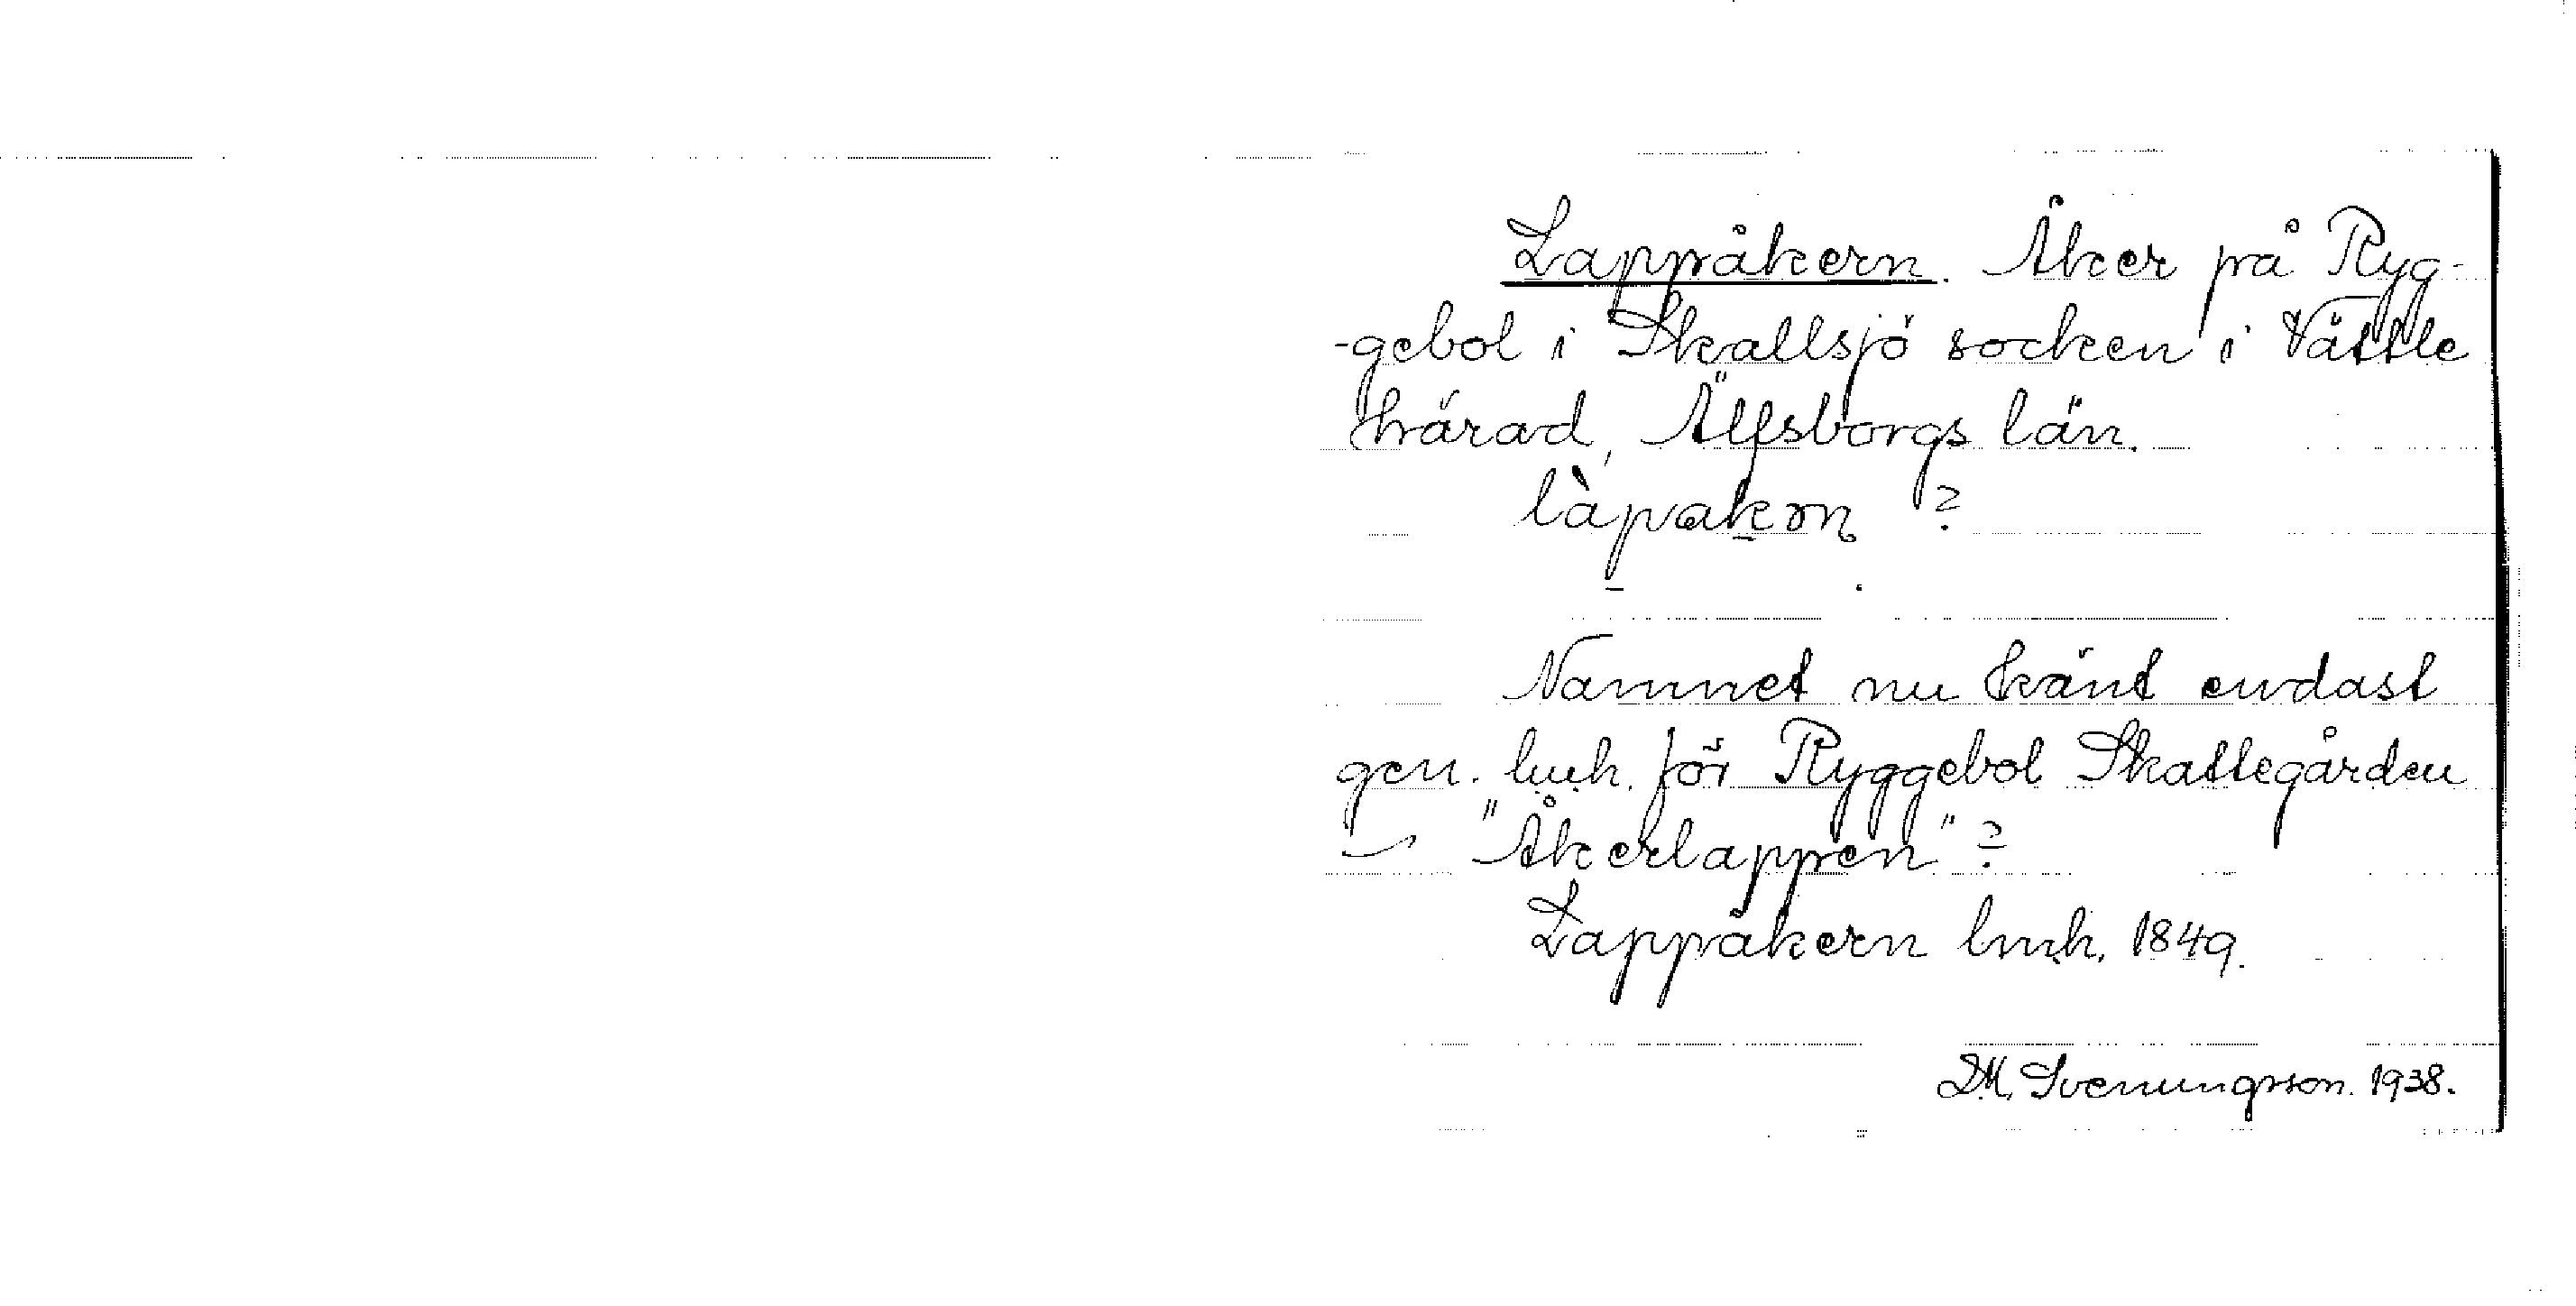 Lappåkern. Åker på Ryg-
-gebol i Skallsjö socken i Vättle
härad, Älfsborgs län.
làpakɘn ?
Namnet nu känt endast
gen. lmh. för Ryggebol Skattegården
"Åkerlappen" ?
Lappåkern lmh. 1849.
D.M. Svenungsson. 1938.